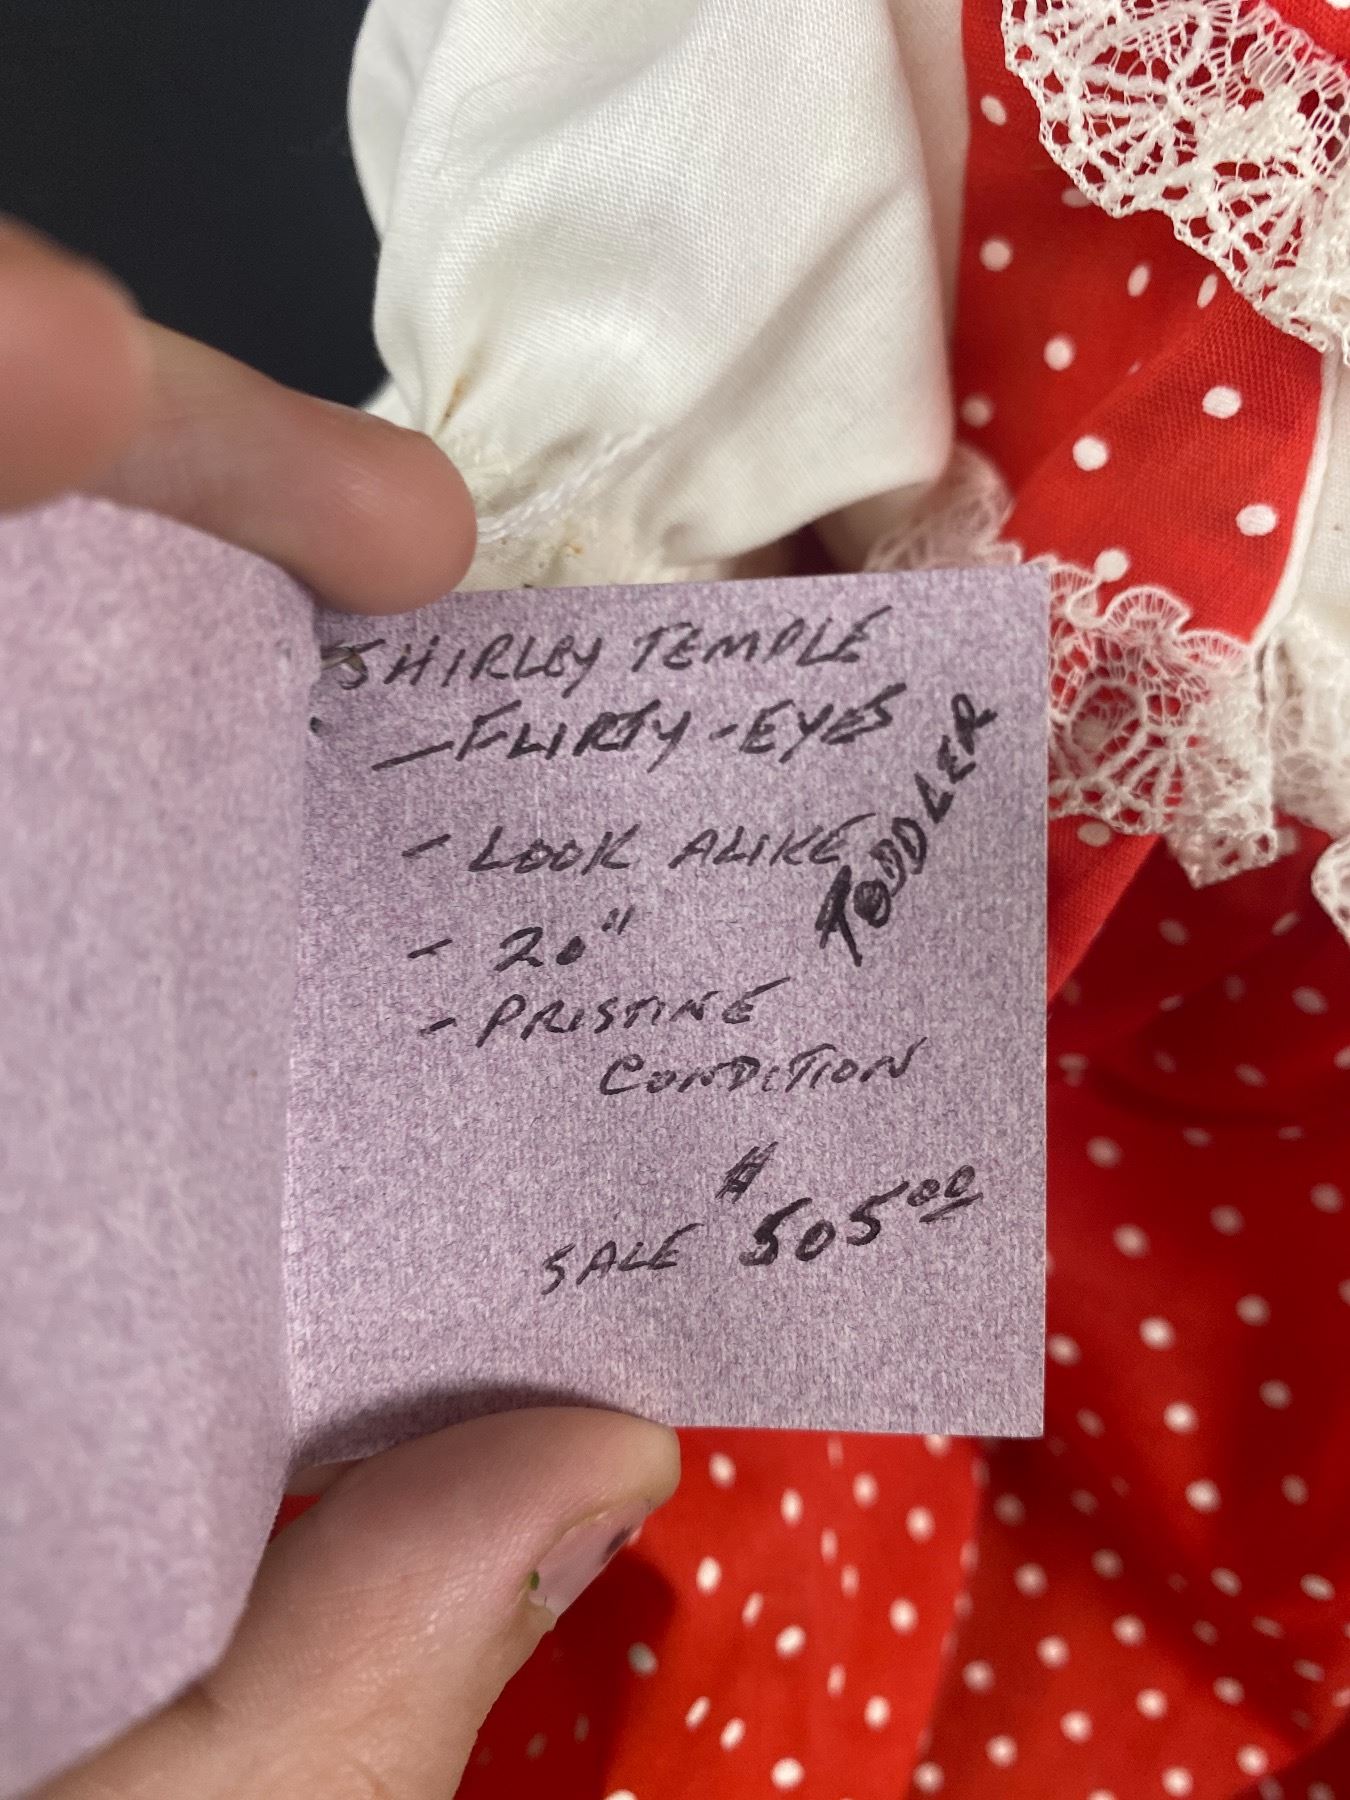 SHIRLEY TEMPLE
- FLIRTY - EYES
- LOOK ALIKE
TODDLER
- 20"
- PRISTINE
CONDITION
SALE $505.00